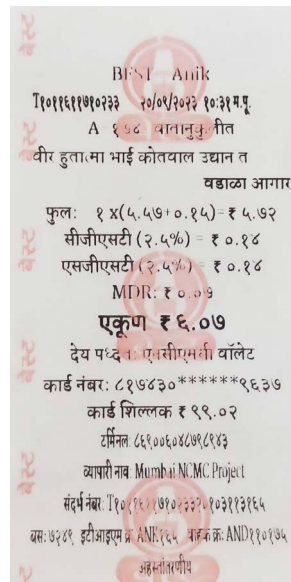 BEST Anik
T१०११६११७१०२३३ २०/०९/२०२३ १०:३१ म.पू.
A १७४ वातानुकुलीत
वीर हुतात्मा भाई कोतवाल उद्यान त
वडाळा आगार
फुल: १ X(५.५७+०.१५)=₹ ५.७२
सीजीएसटी (२.५%) = ₹ ०.१४
एसजीएसटी (२.५%) = ₹ ०.१४
MDR: ₹ ०.०७
एकूण ₹ ६.०७
देय पध्दत: एनसीएमसी वॉलेट
कार्ड नंबर: ८१७४३०******९६३७
कार्ड शिल्लक ₹ ९९.०२
टर्मिनल: ८६९००६०४८७९८९४३
व्यापारी नाव: Mumbai NCMC Project
संदर्भ नंबर:
बस: ७२४९ इटीआइएम क्र: ANK१६५ वाहक क्र: AND११०१७५
अहस्तांतरणीय
बेस्ट
बेस्ट
बेस्ट
बेस्ट